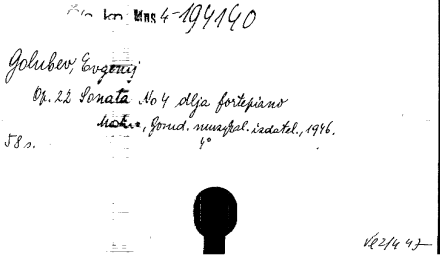 Mus 4-194140
Golubev, Evgenij
Op. 22 Sonata No 4 dlja fortepiano
Moskva, Gosud. muzykal. izdatel., 1946.
58 s. 4°